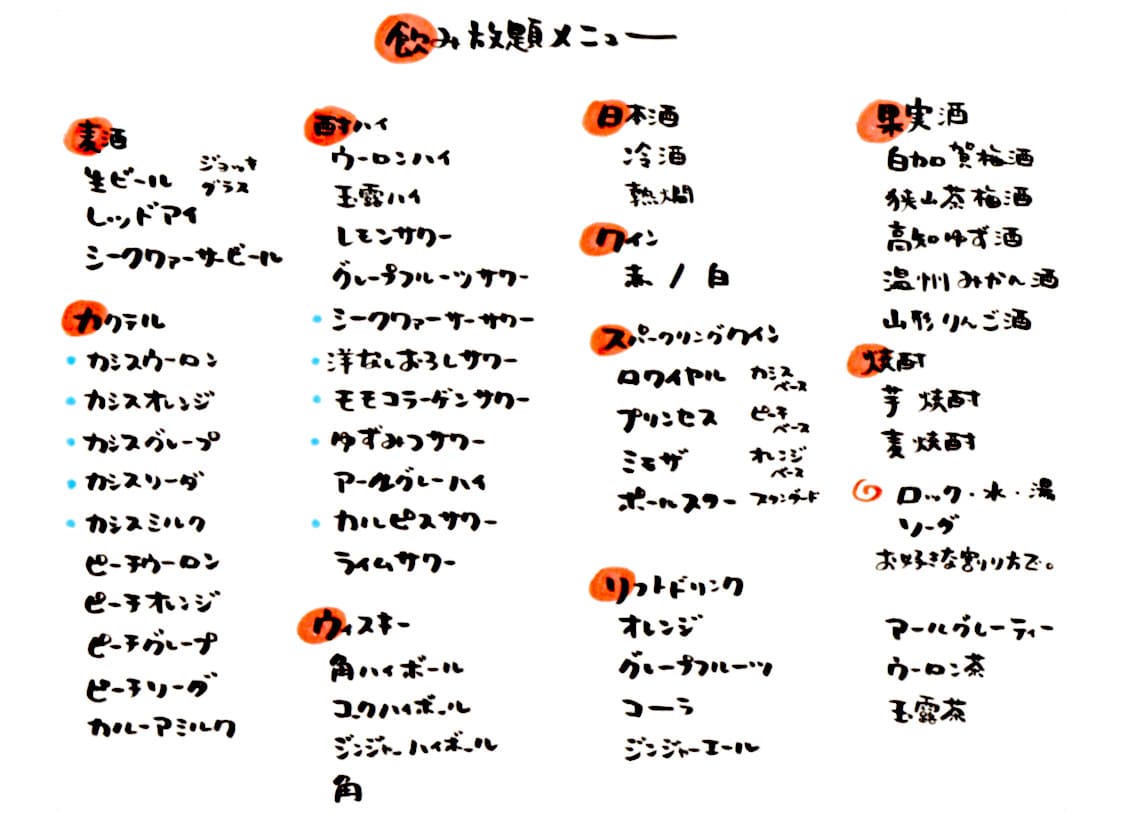 飲み放題メニュー
麦酒
生ビール ジョッキ
グラス
レッドアイ
シークヮーサービール
カクテル
カシスウーロン
カシスオレンジ
カシスグレープ
カシスソーダ
カシスミルク
ピーチウーロン
ピーチオレンジ
ピーチグレープ
ピーチソーダ
カルーアミルク
酎ハイ
ウーロンハイ
玉露ハイ
レモンサワー
グレープフルーツサワー
シークヮーサーサワー
洋なしおろしサワー
モモコラーゲンサワー
ゆずみつサワー
アールグレーハイ
カルピスサワー
ライムサワー
ウィスキー
角ハイボール
コークハイボール
ジンジャーハイボール
角
日本酒
冷酒
熱燗
ワイン
赤 / 白
スパークリングワイン
ロワイヤル カシス
ベース
プリンセス ピーチ
ベース
ミモザ オレンジ
ベース
ポールスター スタンダード
ソフトドリンク
オレンジ
グレープフルーツ
コーラ
ジンジャーエール
果実酒
白加賀梅酒
狭山茶梅酒
高知ゆず酒
温州みかん酒
山形りんご酒
焼酎
芋焼酎
麦焼酎
ロック・水・湯
ソーダ
お好きな割り方で。
アールグレーティー
ウーロン茶
玉露茶